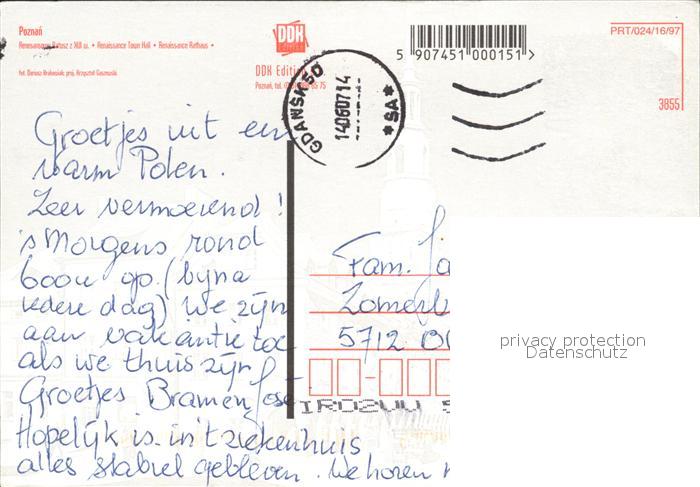 Poznań
Renesansowy Ratusz z XVI w. • Renaissance Town Hall • Renaissance Rathaus •
fot. Dariusz Krakowiak; proj. Krzysztof
DDH
DDH Edition
Poznań, tel.
5 907451 000151 >
PRT/024/16/97
3855
GDAŃSK 50
14060714
*SA*
Groetjes uit een
warm Polen.
Zeer vermoeiend!
's Morgens rond
600u op. (bijna
iedere dag) We zijn
aan vakantie toe
als we thuis zijn
Groetjes Bram en José
Hopelijk is in 't ziekenhuis
alles stabiel gebleven. We horen
Fam. Ja
Zomerb
5712
privacy protection
Datenschutz